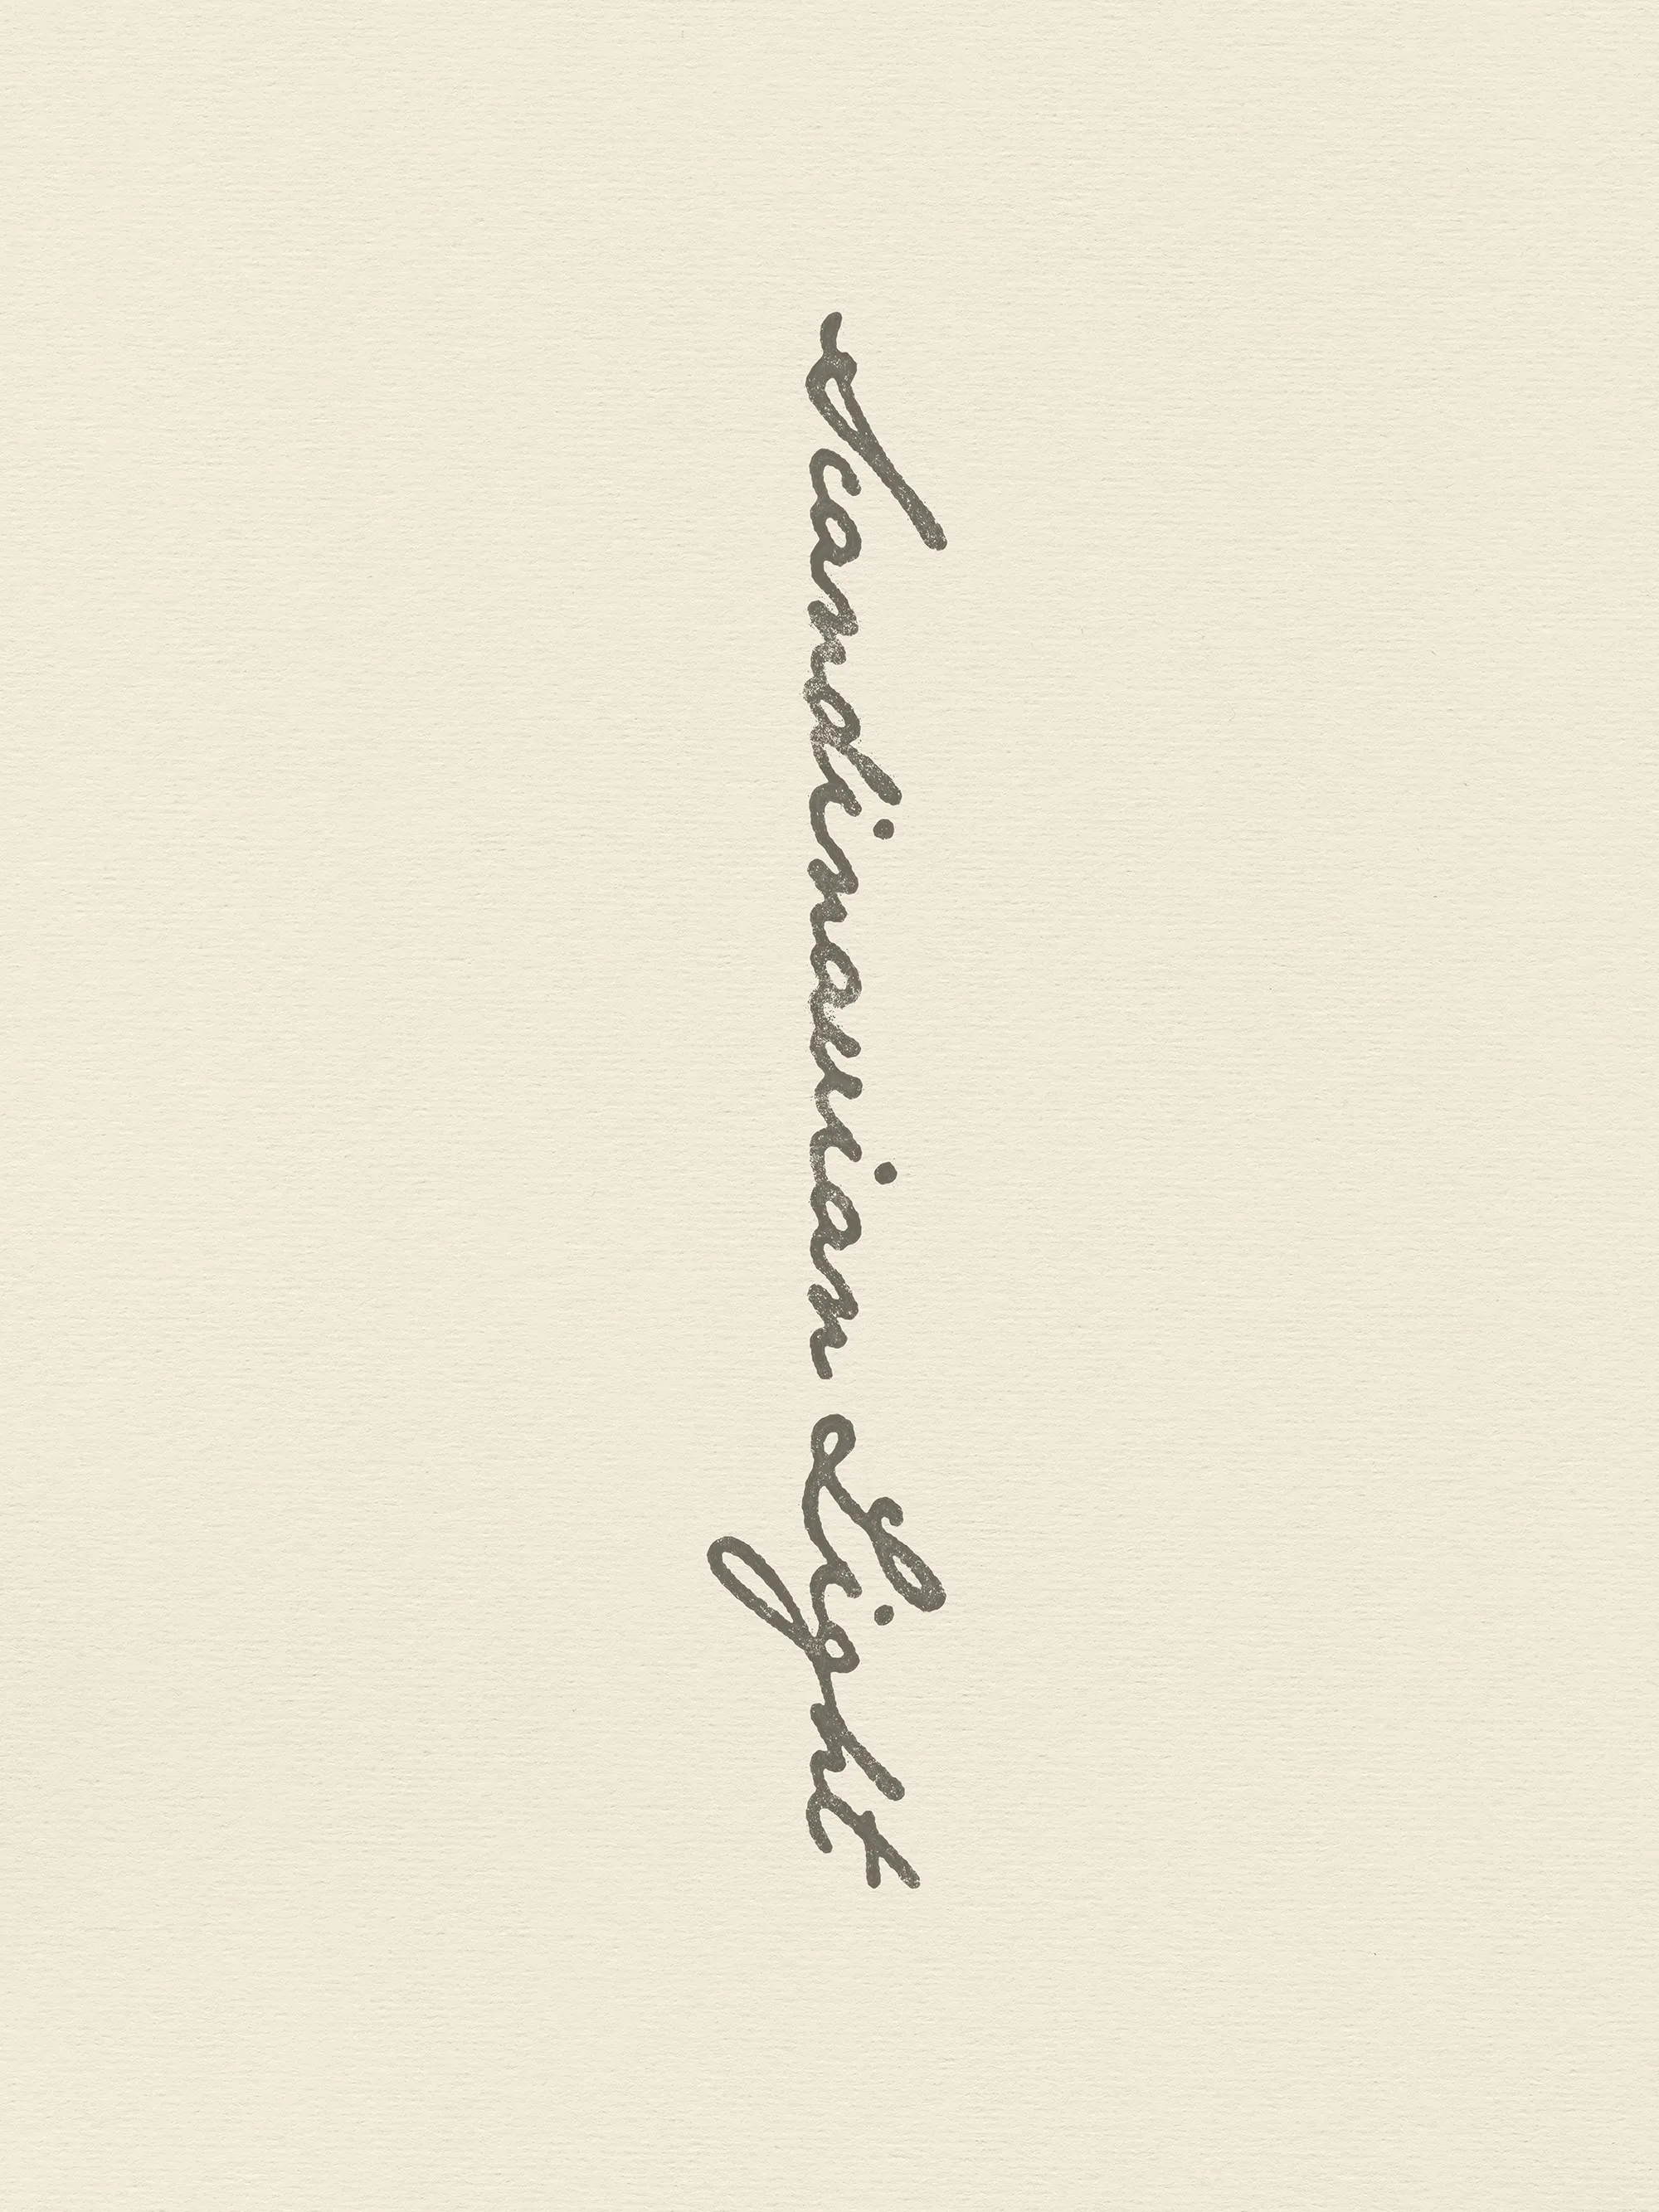 Scandinavian Light